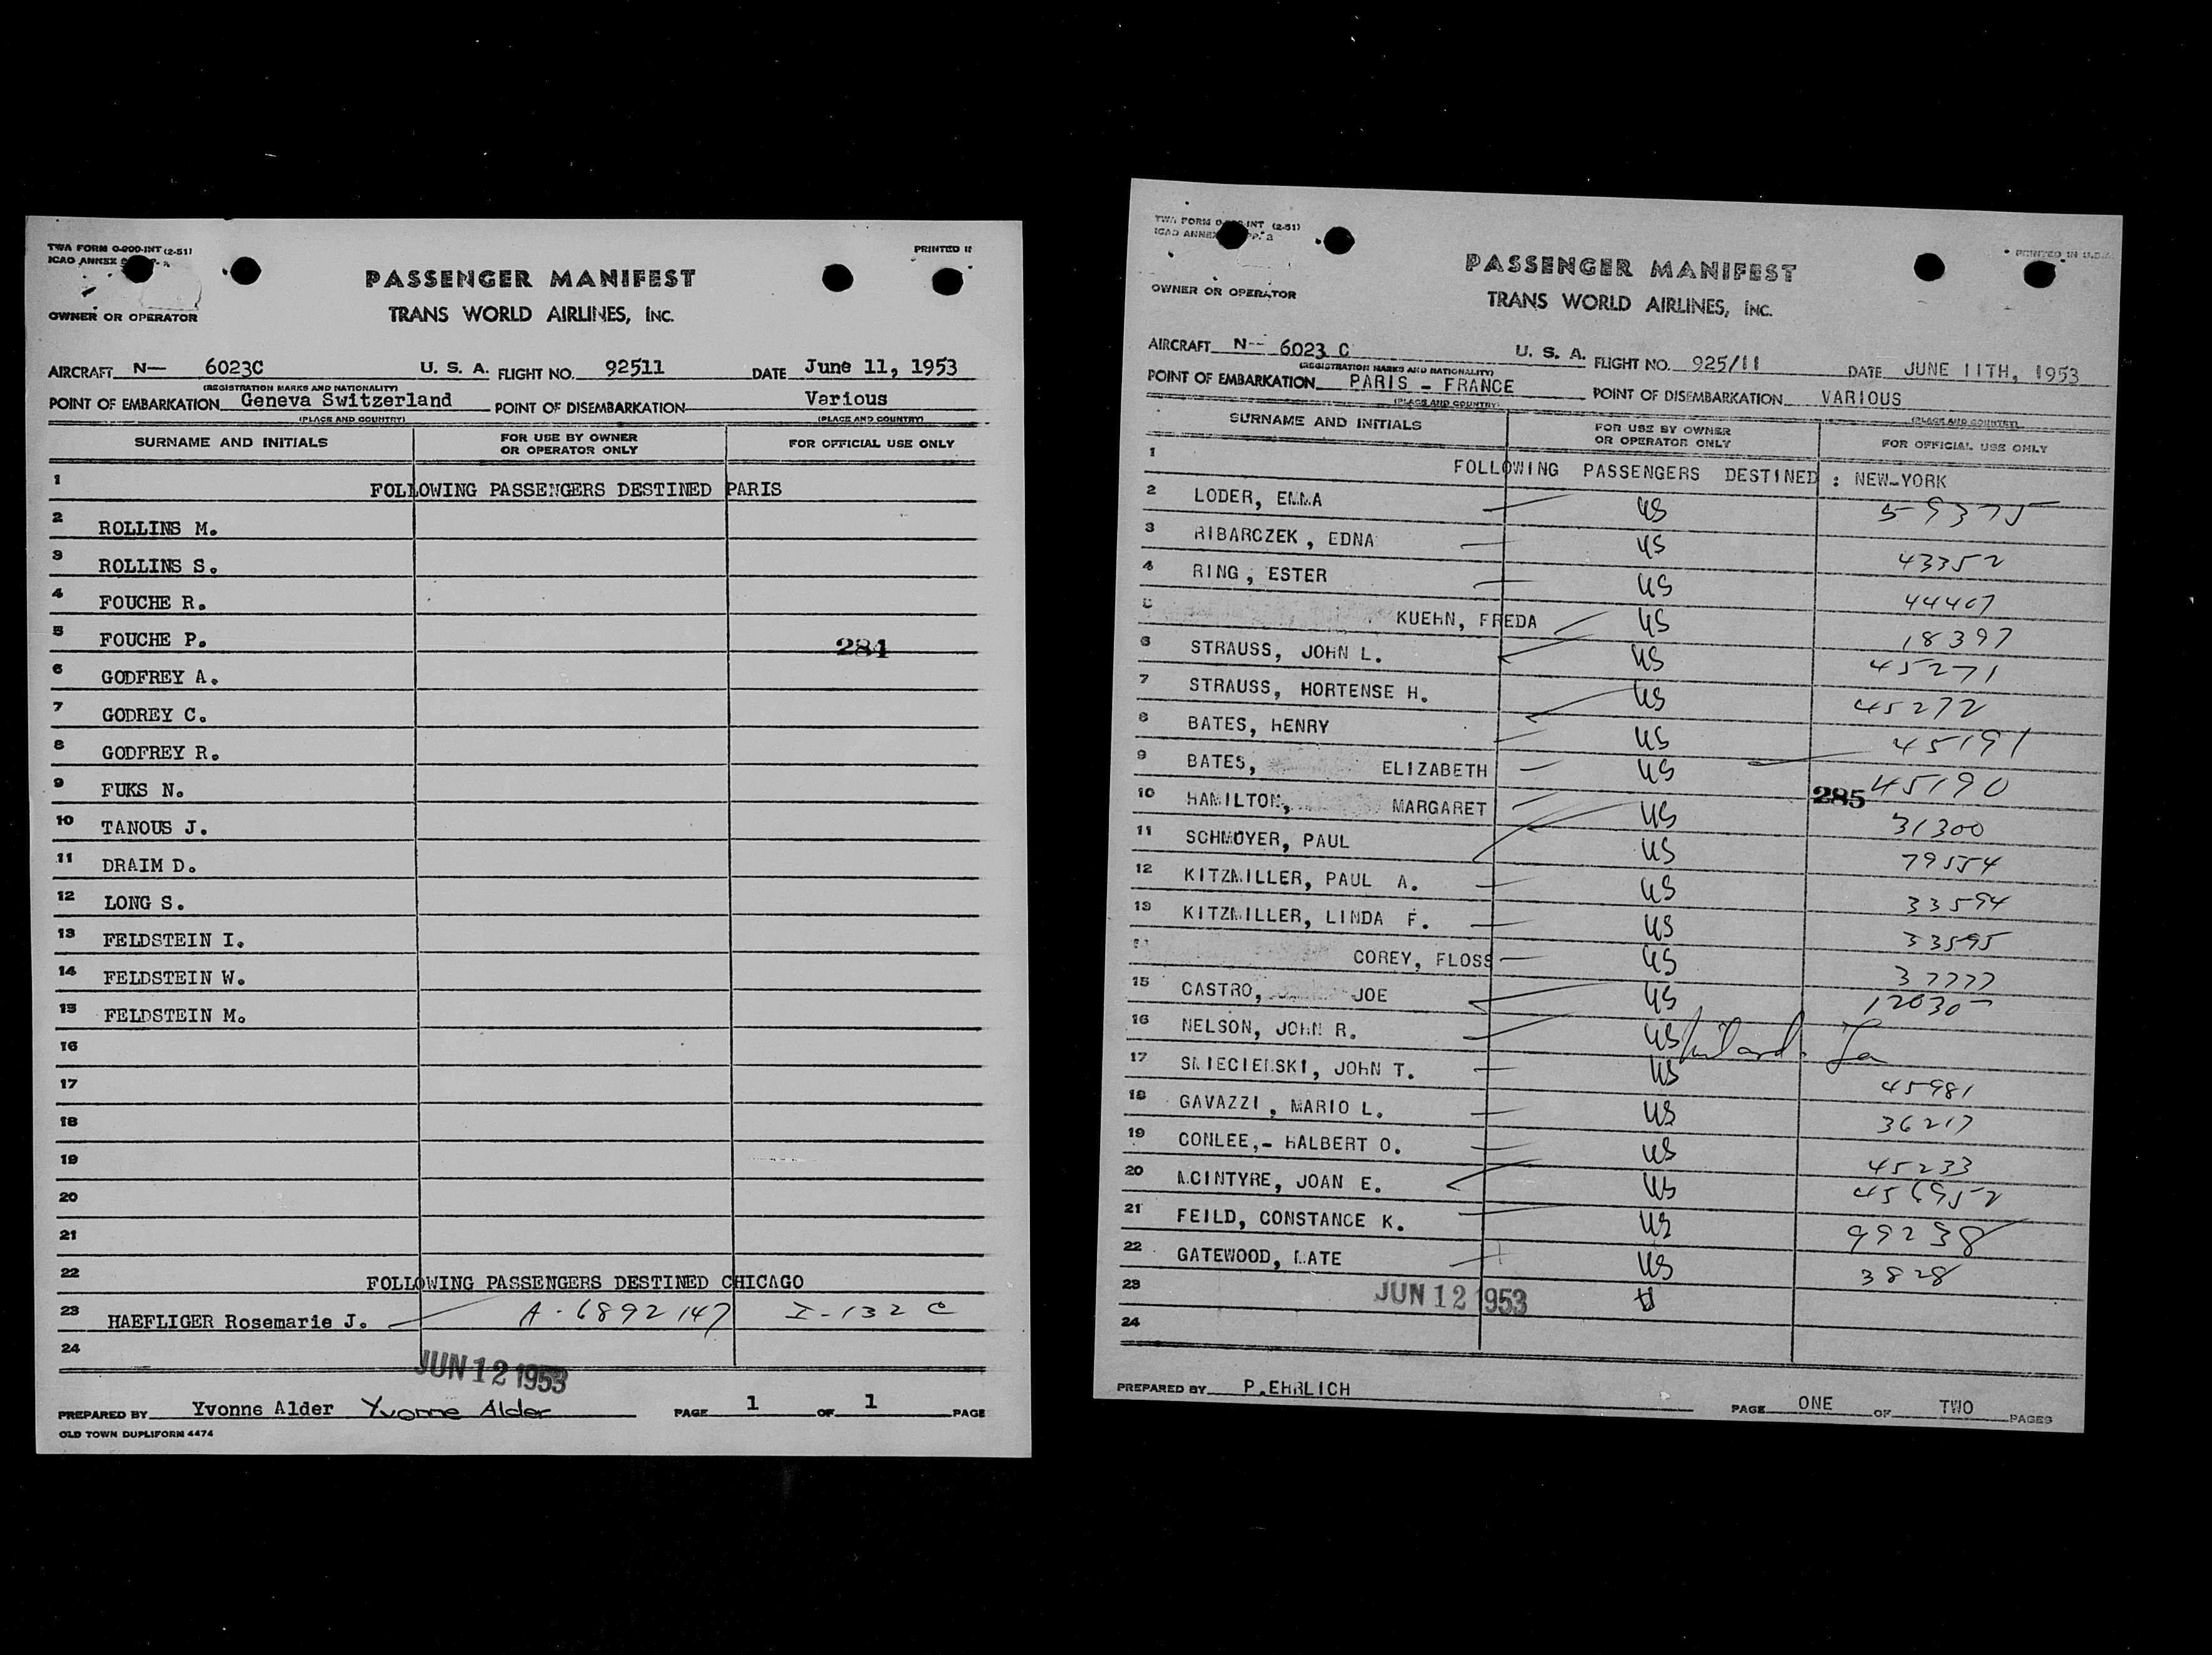 TWA FORM 0-900-INT (2-51)
ICAO ANNEX
PRINTED
PASSENGER MANIFEST
TRANS WORLD AIRLINES, INC.
OWNER OR OPERATOR
AIRCRAFT N— 6023C U. S. A. FLIGHT NO. 92511 DATE June 11, 1953
(REGISTRATION MARKS AND NATIONALITY)
POINT OF EMBARKATION Geneva Switzerland POINT OF DISEMBARKATION Various
(PLACE AND COUNTRY) (PLACE AND COUNTRY)
SURNAME AND INITIALS FOR USE BY OWNER OR OPERATOR ONLY FOR OFFICIAL USE ONLY
1 FOLLOWING PASSENGERS DESTINED PARIS
2 ROLLINS M.
3 ROLLINS S.
4 FOUCHE R.
5 FOUCHE P. 284
6 GODFREY A.
7 GODREY C.
8 GODFREY R.
9 FUKS N.
10 TANOUS J.
11 DRAIM D.
12 LONG S.
13 FELDSTEIN I.
14 FELDSTEIN W.
15 FELDSTEIN M.
16
17
18
19
20
21
22 FOLLOWING PASSENGERS DESTINED CHICAGO
23 HAEFLIGER Rosemarie J. A-6892147 I-132 C
24
JUN 12 1953
PREPARED BY Yvonne Alder Yvonne Alder PAGE 1 OF 1 PAGE
OLD TOWN DUPLIFORM 4474
TWA FORM INT (2-51)
ICAO ANNEX
PRINTED IN U.S.A.
PASSENGER MANIFEST
TRANS WORLD AIRLINES, INC.
OWNER OR OPERATOR
AIRCRAFT N-- 6023 C U. S. A. FLIGHT NO. 925/11 DATE JUNE 11TH, 1953
(REGISTRATION MARKS AND NATIONALITY)
POINT OF EMBARKATION PARIS - FRANCE POINT OF DISEMBARKATION VARIOUS
(PLACE AND COUNTRY) (PLACE AND COUNTRY)
SURNAME AND INITIALS FOR USE BY OWNER OR OPERATOR ONLY FOR OFFICIAL USE ONLY
1 FOLLOWING PASSENGERS DESTINED : NEW-YORK
2 LODER, EMMA US 59375
3 RIBARCZEK, EDNA US 43352
4 RING, ESTER US 44467
5 KUEHN, FREDA US 18397
6 STRAUSS, JOHN L. US 45271
7 STRAUSS, HORTENSE H. US 45272
8 BATES, HENRY US 45191
9 BATES, ELIZABETH US 45190
285
10 HAMILTON, MARGARET US 31300
11 SCHMOYER, PAUL US 79554
12 KITZMILLER, PAUL A. US 33594
13 KITZMILLER, LINDA F. US 33595
COREY, FLOSS US 37777
15 CASTRO, JOE US 12030
16 NELSON, JOHN R. US
17 SMIECIELSKI, JOHN T. US 45981
18 GAVAZZI, MARIO L. US 36217
19 CONLEE,- HALBERT O. US 45233
20 MCINTYRE, JOAN E. US 456952
21 FEILD, CONSTANCE K. US 99238
22 GATEWOOD, MATE US 3828
23 JUN 12 1953
24
PREPARED BY P.EHRLICH PAGE ONE OF TWO PAGES